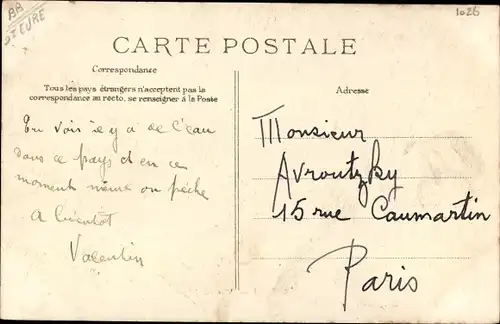 BA
ST EURE
1026
CARTE POSTALE
Correspondance
Tous les pays étrangers n'acceptent pas la
correspondance au recto, se renseigner à la Poste
Adresse
Tu vois il y a de l'eau
dans ce pays et en ce
moment même on pêche
A bientot
Valentin
Monsieur
Avroutzky
15 rue Caumartin
Paris